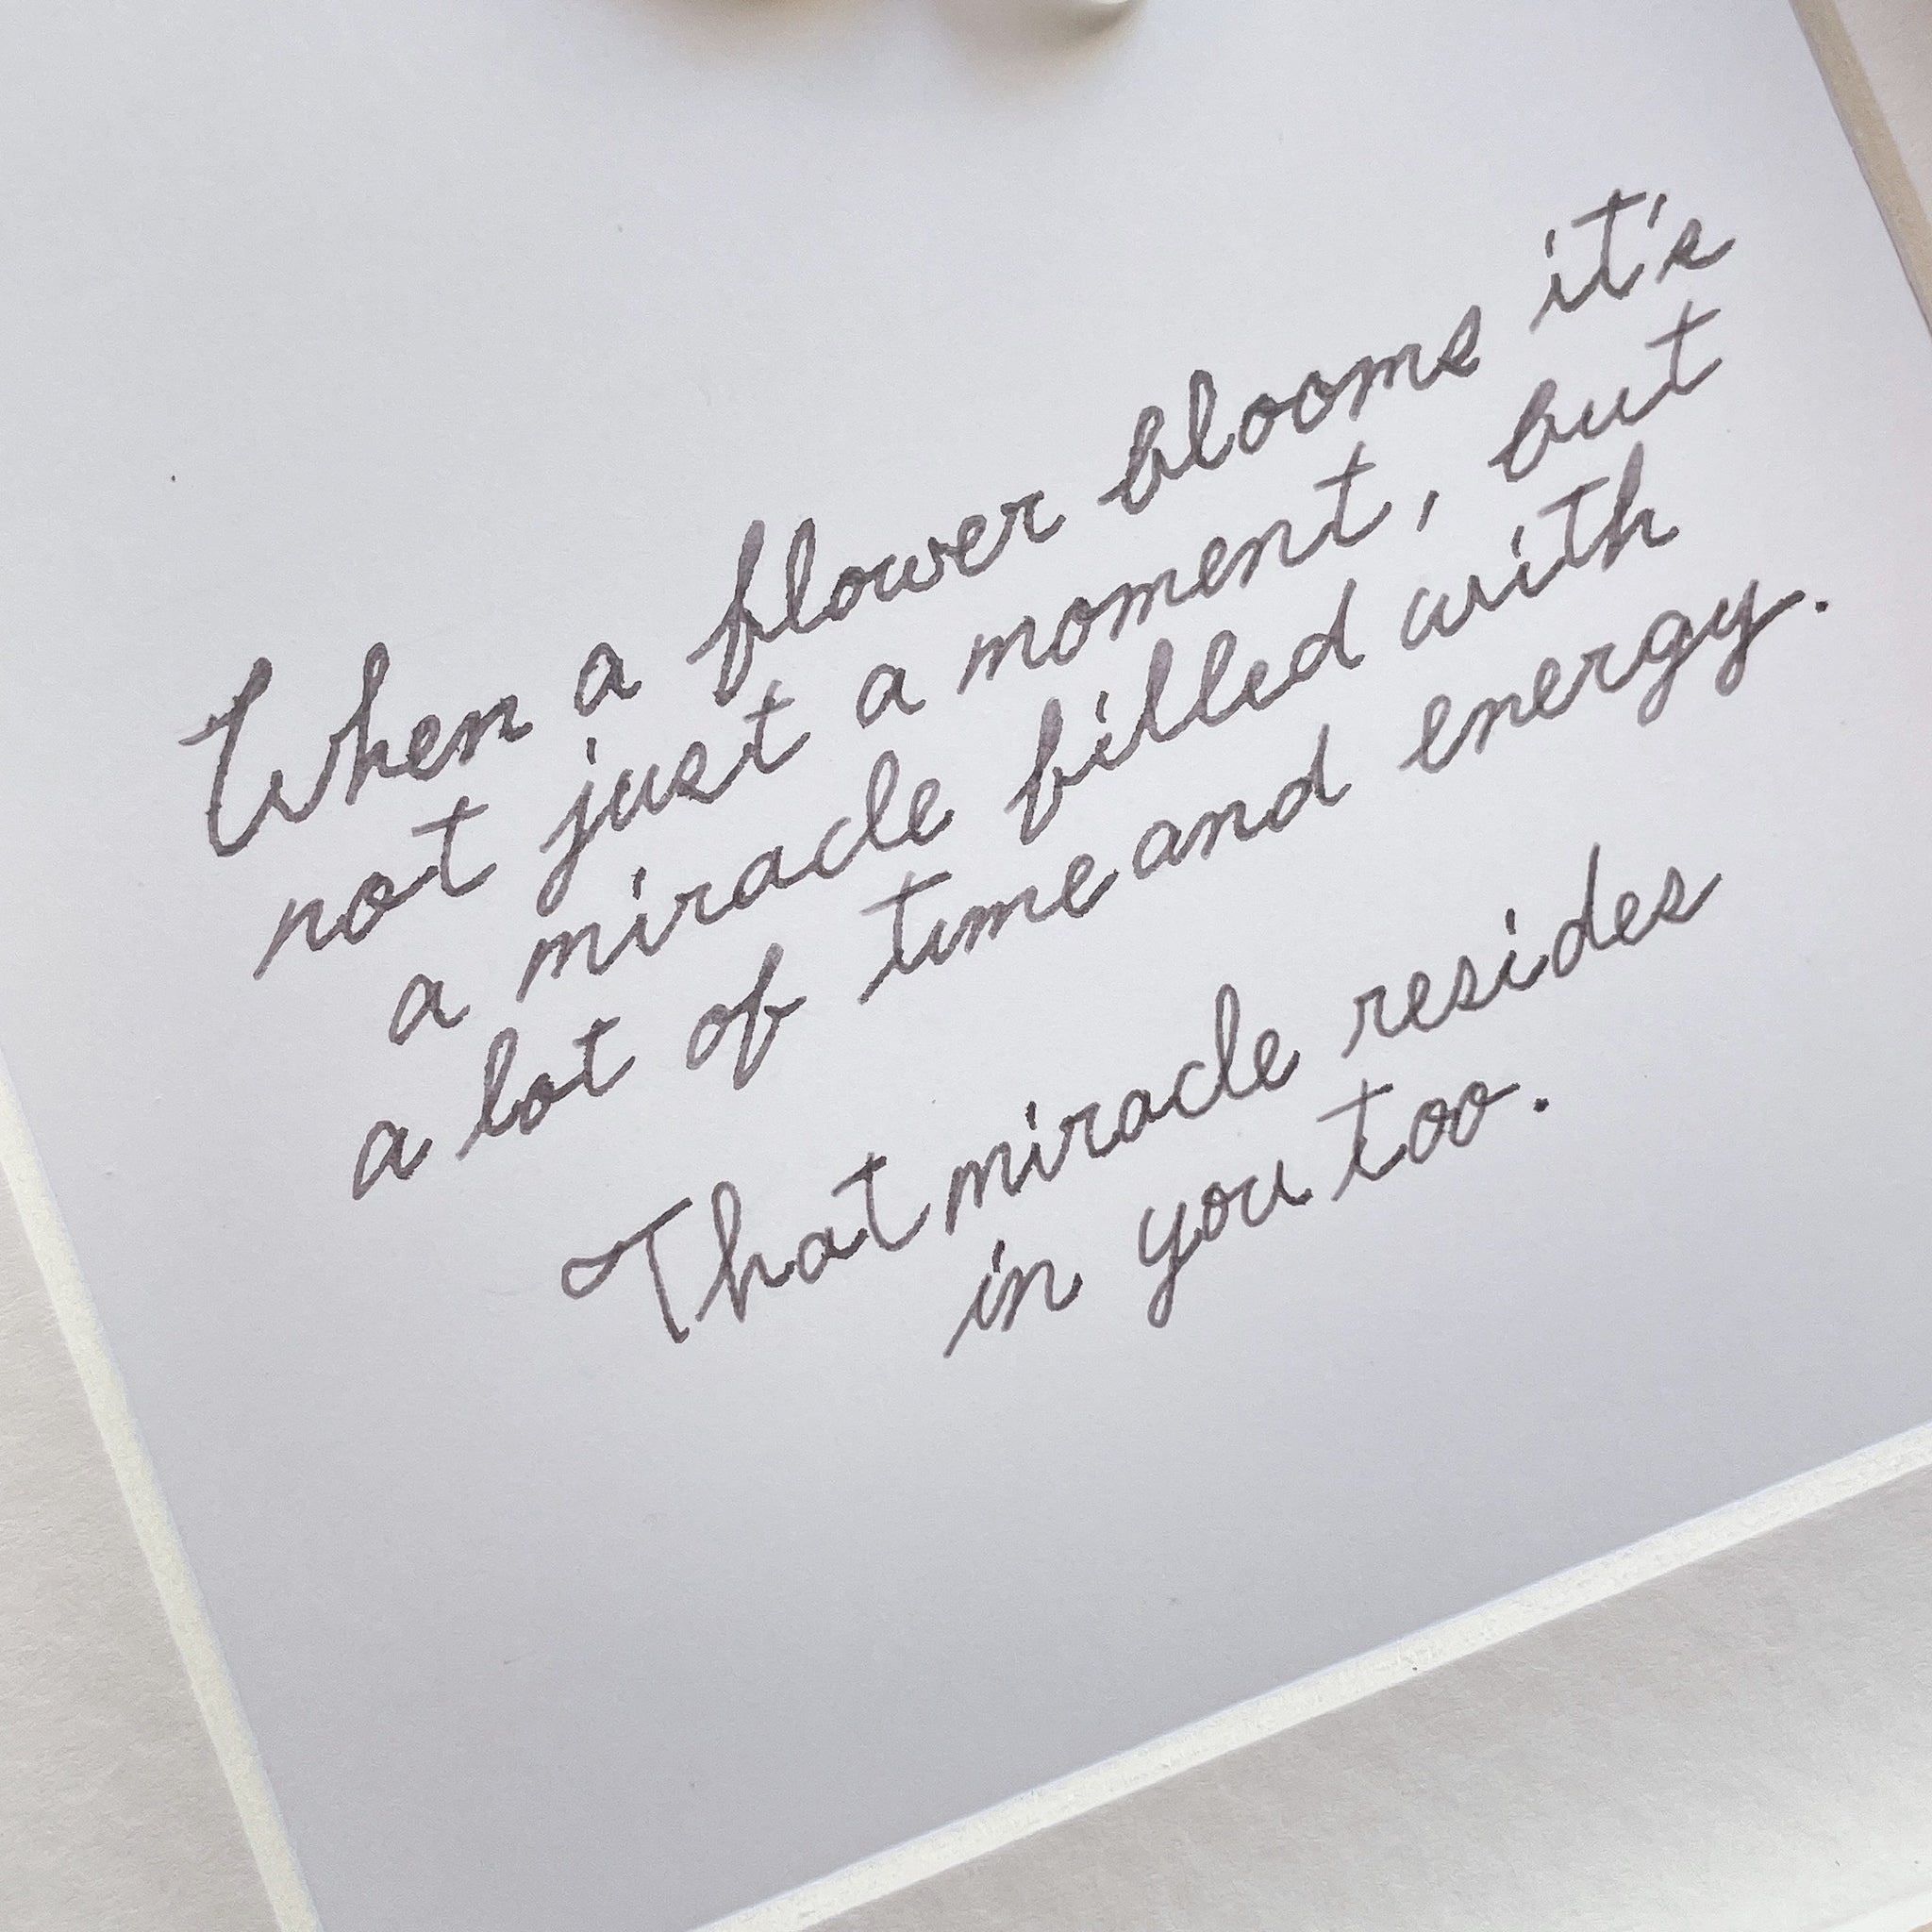 When a flower blooms it's
not just a moment, but
a miracle filled with
a lot of time and energy.
That miracle resides
in you too.